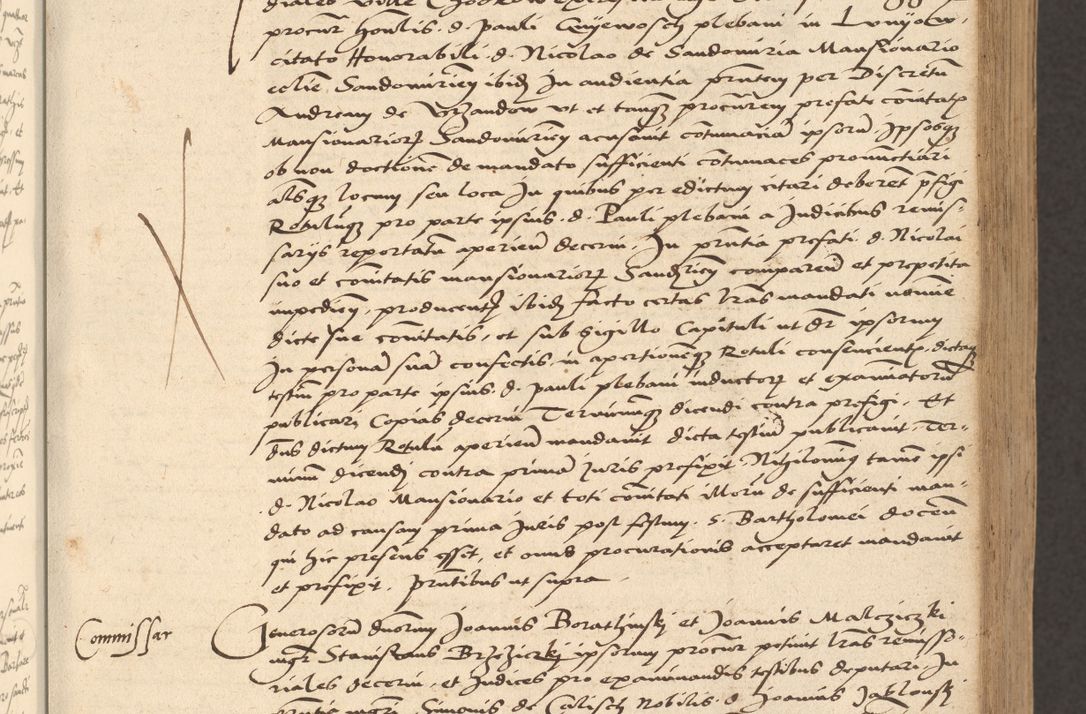 procur honlis d Pauli Gnyewosch plebani in Lunyow
citato Honorabili d Nicolao de Sandomiria Mansionario
eclie Sandomirien ibid In audientia prntem per Discretu
Andream de Vrzandow ut et tanq procurem prefate comitatis
Mansionarior Sandomirien acusavit cotumacia ipsoru Ipsosq
ob non doctione de mandato sufficienti cotumaces pronunctiari
alsq locum seu loca In quibus per edictum citari deberet pfigi
Rotuluq pro parte ipsius d Pauli plebani a Judicibus remis-
sarijs reportatu aperien decerni. In prntia prefati d Nicolai
suo et comitatis mansionarior Sandrien comparen et prepetita
impedien, producent ibid facto certas lras mandati nomine
dicte sue comitatis, et sub Sigillo Capituli ut dr ipsorum
In persona sua confectis, in apertioneq Rotuli consencient, dictaq
testiu pro parte ipsius d Pauli plebani inductor et examinatoru
publicari Copias decerni Terminumq dicendi contra prefigi. Et
Dns dictum Rotulu aperien mandavit dicta testium publicavit. Ter-
minum dicendi contra prima Juris prefixit Nihilominus tamen ipsi
d. Nicolao Mansionario et toti comitati illoru de sufficienti man-
dato ad causam prima Juris post festum S. Bartholomei docen
qui hic presens esset, et onus procurationis acceptaret mandavit
et prefixit. Prntibus ut supra.
Commissar
Generosoru duorum Joannis Borathinski et Joannis Malczicki
mgr Stanislaus Brzezicki ipsorum procur petivit lras remisso-
riales decerni, et Judices pro examinandis testibus deputari. In
prntia mgri Simonis de Calisch Nobilis d Joannis Jaklonski